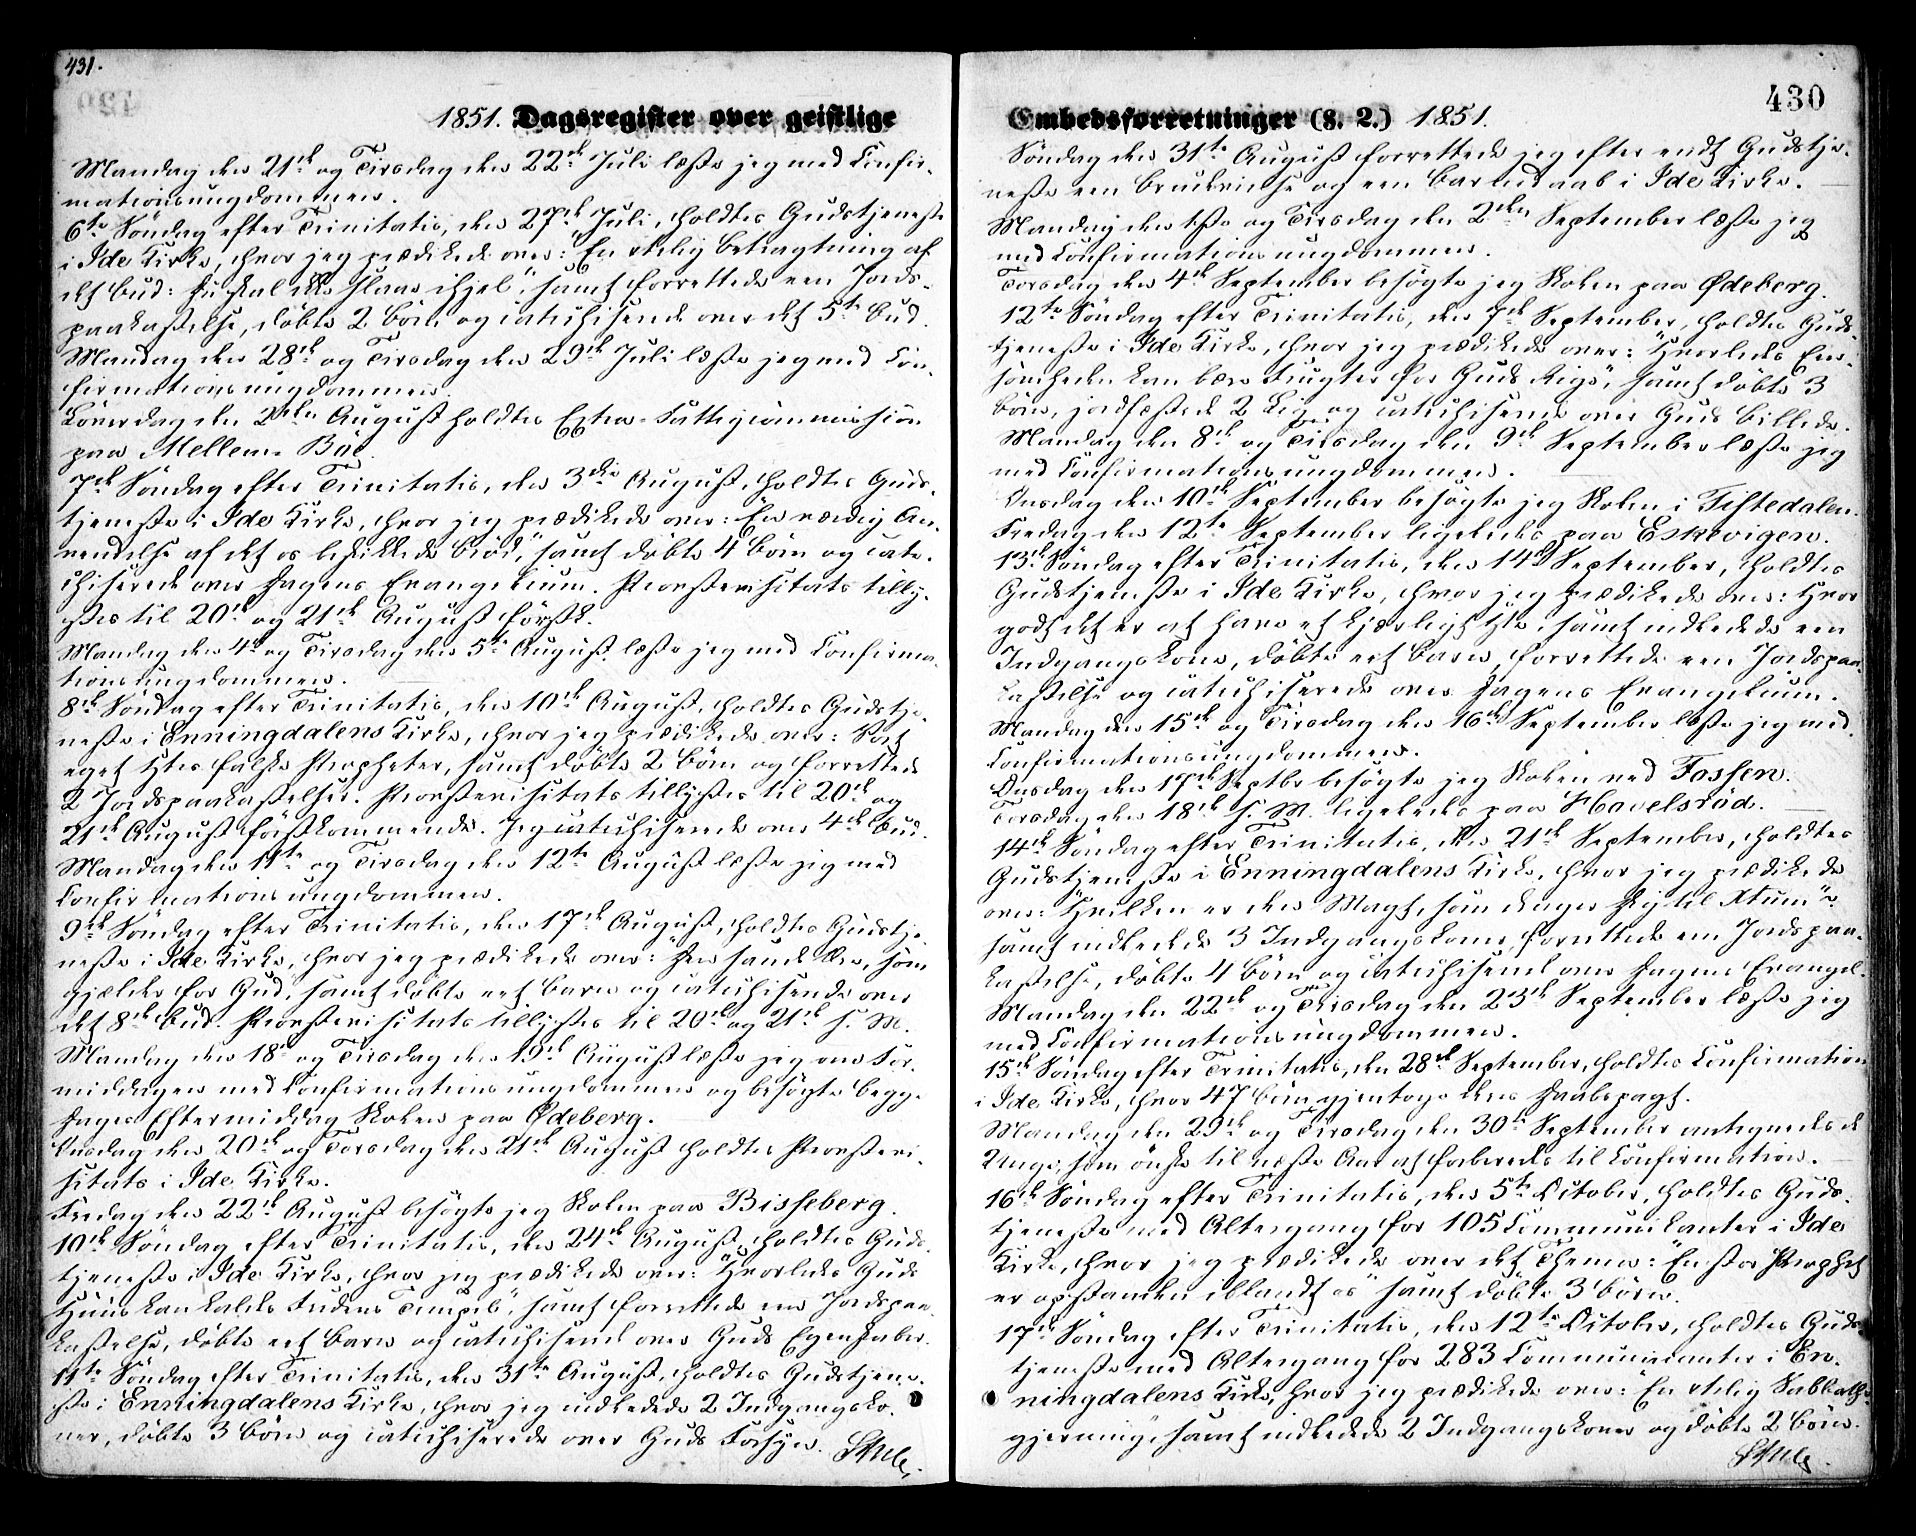 431.
1851. Dagsregister over geistlige
Mandag den 21de og Tirsdag den 22de Juli læste jeg med Confir-
mationsungdommen.
6te Söndag efter Trinitatis, den 27de Juli, holdtes Gudstjeneste
i Ide Kirke, hvor jeg prædikede over: En rolig Betragtning af
det Bud: Du skal ikke slaae ihjel", samt forrettede een Jords-
paakastelse, döbte 2 Börn og catechiserede over det 5te Bud.
Mandag den 28de og Tirsdag den 29de Juli læste jeg med Con-
firmationsungdommen.
Löverdag den 2den August holdtes Extra-Fattigcommission
paa Mellem-Böe.
7de Söndag efter Trinitatis, den 3die August, holdtes Guds-
tjeneste i Ide Kirke, hvor jeg prædikede over: En værdig An-
vendelse af det os beskikkede Bröd," samt döbte 4 Börn og cate-
chiserede over Dagens Evangelium. Provstevisitats tilly-
stes til 20de og 21de August förstk.
Mandag den 4de og Tirsdag den 5te August læste jeg med Confirma-
tionsungdommen.
8de Söndag efter Trinitatis, den 10de August, holdtes Gudstje-
neste i Enningdalens Kirke, hvor jeg prædikede over: Vort
eget Hjertes falske Propheter, samt döbte 2 Börn og forrettede
2 Jordspaakastelser. Provstevisitats tillystes til 20de og
21de August förstkommende. Jeg catechiserede over 4de Bud.
Mandag den 11te og Tirsdag den 12te August læste jeg med
Confirmationsungdommen.
9de Söndag efter Trinitatis, den 17de August, holdtes Gudstje-
neste i Ide Kirke, hvor jeg prædikede over: Den sande Ære, som
gjælder for Gud, samt döbte eet Barn og catechiserede over
det 8de Bud. Provstevisitats tillystes til 20de og 21de s. M.
Mandag den 18de og Tirsdag den 19de August læste jeg om For-
middagen med Confirmationsungdommen og besögte begge
Dages Eftermiddag Skolen paa Ødeberg.
Onsdag den 20de og Torsdag den 21de August holdtes Provstevi-
sitats i Ide Kirke.
Fredag den 22de August besögte jeg Skolen paa Bisseberg.
10de Söndag efter Trinitatis, den 24de August, holdtes Guds-
tjeneste i Ide Kirke, hvor jeg prædikede over: "Hvorledes Guds
Huus kan kaldes Fredens Tempel", samt forrettede een Jordspaa-
kastelse, döbte eet Barn og catechiserede over Guds Egenskaber.
11te Söndag efter Trinitatis, den 31te August, holdtes Gudstjene-
ste i Enningdalens Kirke, hvor jeg indledede 2 Indgangsko-
ner, döbte 3 Börn og catechiserede over Guds Forsyn.
430
Embedsforretninger (§. 2.) 1851.
Söndag den 31te August forrettede jeg efter endt Gudstje-
neste een Brudevielse og een Barnedaab i Ide Kirke.
Mandag den 1ste og Tirsdag den 2den September læste jeg
med Confirmationsungdommen.
Torsdag den 4de September besögte jeg Skolen paa Ødeberg.
12te Söndag efter Trinitatis, den 7de September, holdtes Guds-
tjeneste i Ide Kirke, hvor jeg prædikede over: "Hvorledes Een-
somheden kan bære Frugter for Guds Rige", samt döbte 3
Börn, jordfæstede 2 Lig og catechiserede over Guds Billede.
Mandag den 8de og Tirsdag den 9de September læste jeg
med Confirmationsungdommen.
Onsdag den 10de September besögte jeg Skolen i Tistedalen.
Fredag den 12te September ligeledes paa Eskevigen.
13de Söndag efter Trinitatis, den 14de September, holdtes
Gudstjeneste i Ide Kirke, hvor jeg prædikede over: Hvor
godt det er at have et kjærligt Hjerte, samt indledede een
Indgangskone, döbte eet Barn, forrettede een Jordspaa-
kastelse og catechiserede over Dagens Evangelium.
Mandag den 15de og Tirsdag den 16de September læste jeg med
Confirmationsungdommen.
Onsdag den 17de Septbr besögte jeg Skolen ved Fossen.
Torsdag den 18de s. M. ligeledes paa Havelsröd.
14de Söndag efter Trinitatis, den 21de September, holdtes
Gudstjeneste i Enningdalens Kirke, hvor jeg prædikede
over: Hvilken er den Magt, som drager Dig til Xtum"?
samt indledede 3 Indgangskoner, forrettede een Jordspaa-
kastelse, döbte 4 Börn og catechiserede over Dagens Evangel.
Mandag den 22de og Tirsdag den 23de September læste jeg
med Confirmationsungdommen.
15de Söndag efter Trinitatis, den 28de September, holdtes Confirmation
i Ide Kirke, hvor 47 Börn gjentoge deres Daabspagt.
Mandag den 29de og Tirsdag den 30te September antegnedes de
Unge, som önske til næste Aar at forberedes til Confirmation.
16de Söndag efter Trinitatis, den 5te October, holdtes Guds-
tjeneste med Altergang for 105 Communicanter i Ide
Kirke, hvor jeg prædikede over det Thema: "En stor Prophet
er opstanden iblandt os" samt döbte 3 Börn.
17de Söndag efter Trinitatis, den 12te October, holdtes Guds-
tjeneste med Altergang for 283 Communicanter i En-
ningdalens Kirke, hvor jeg prædikede over: "En rolig Sabbaths-
gjerning", samt indledede 2 Indgangskoner og döbte 2 Börn.